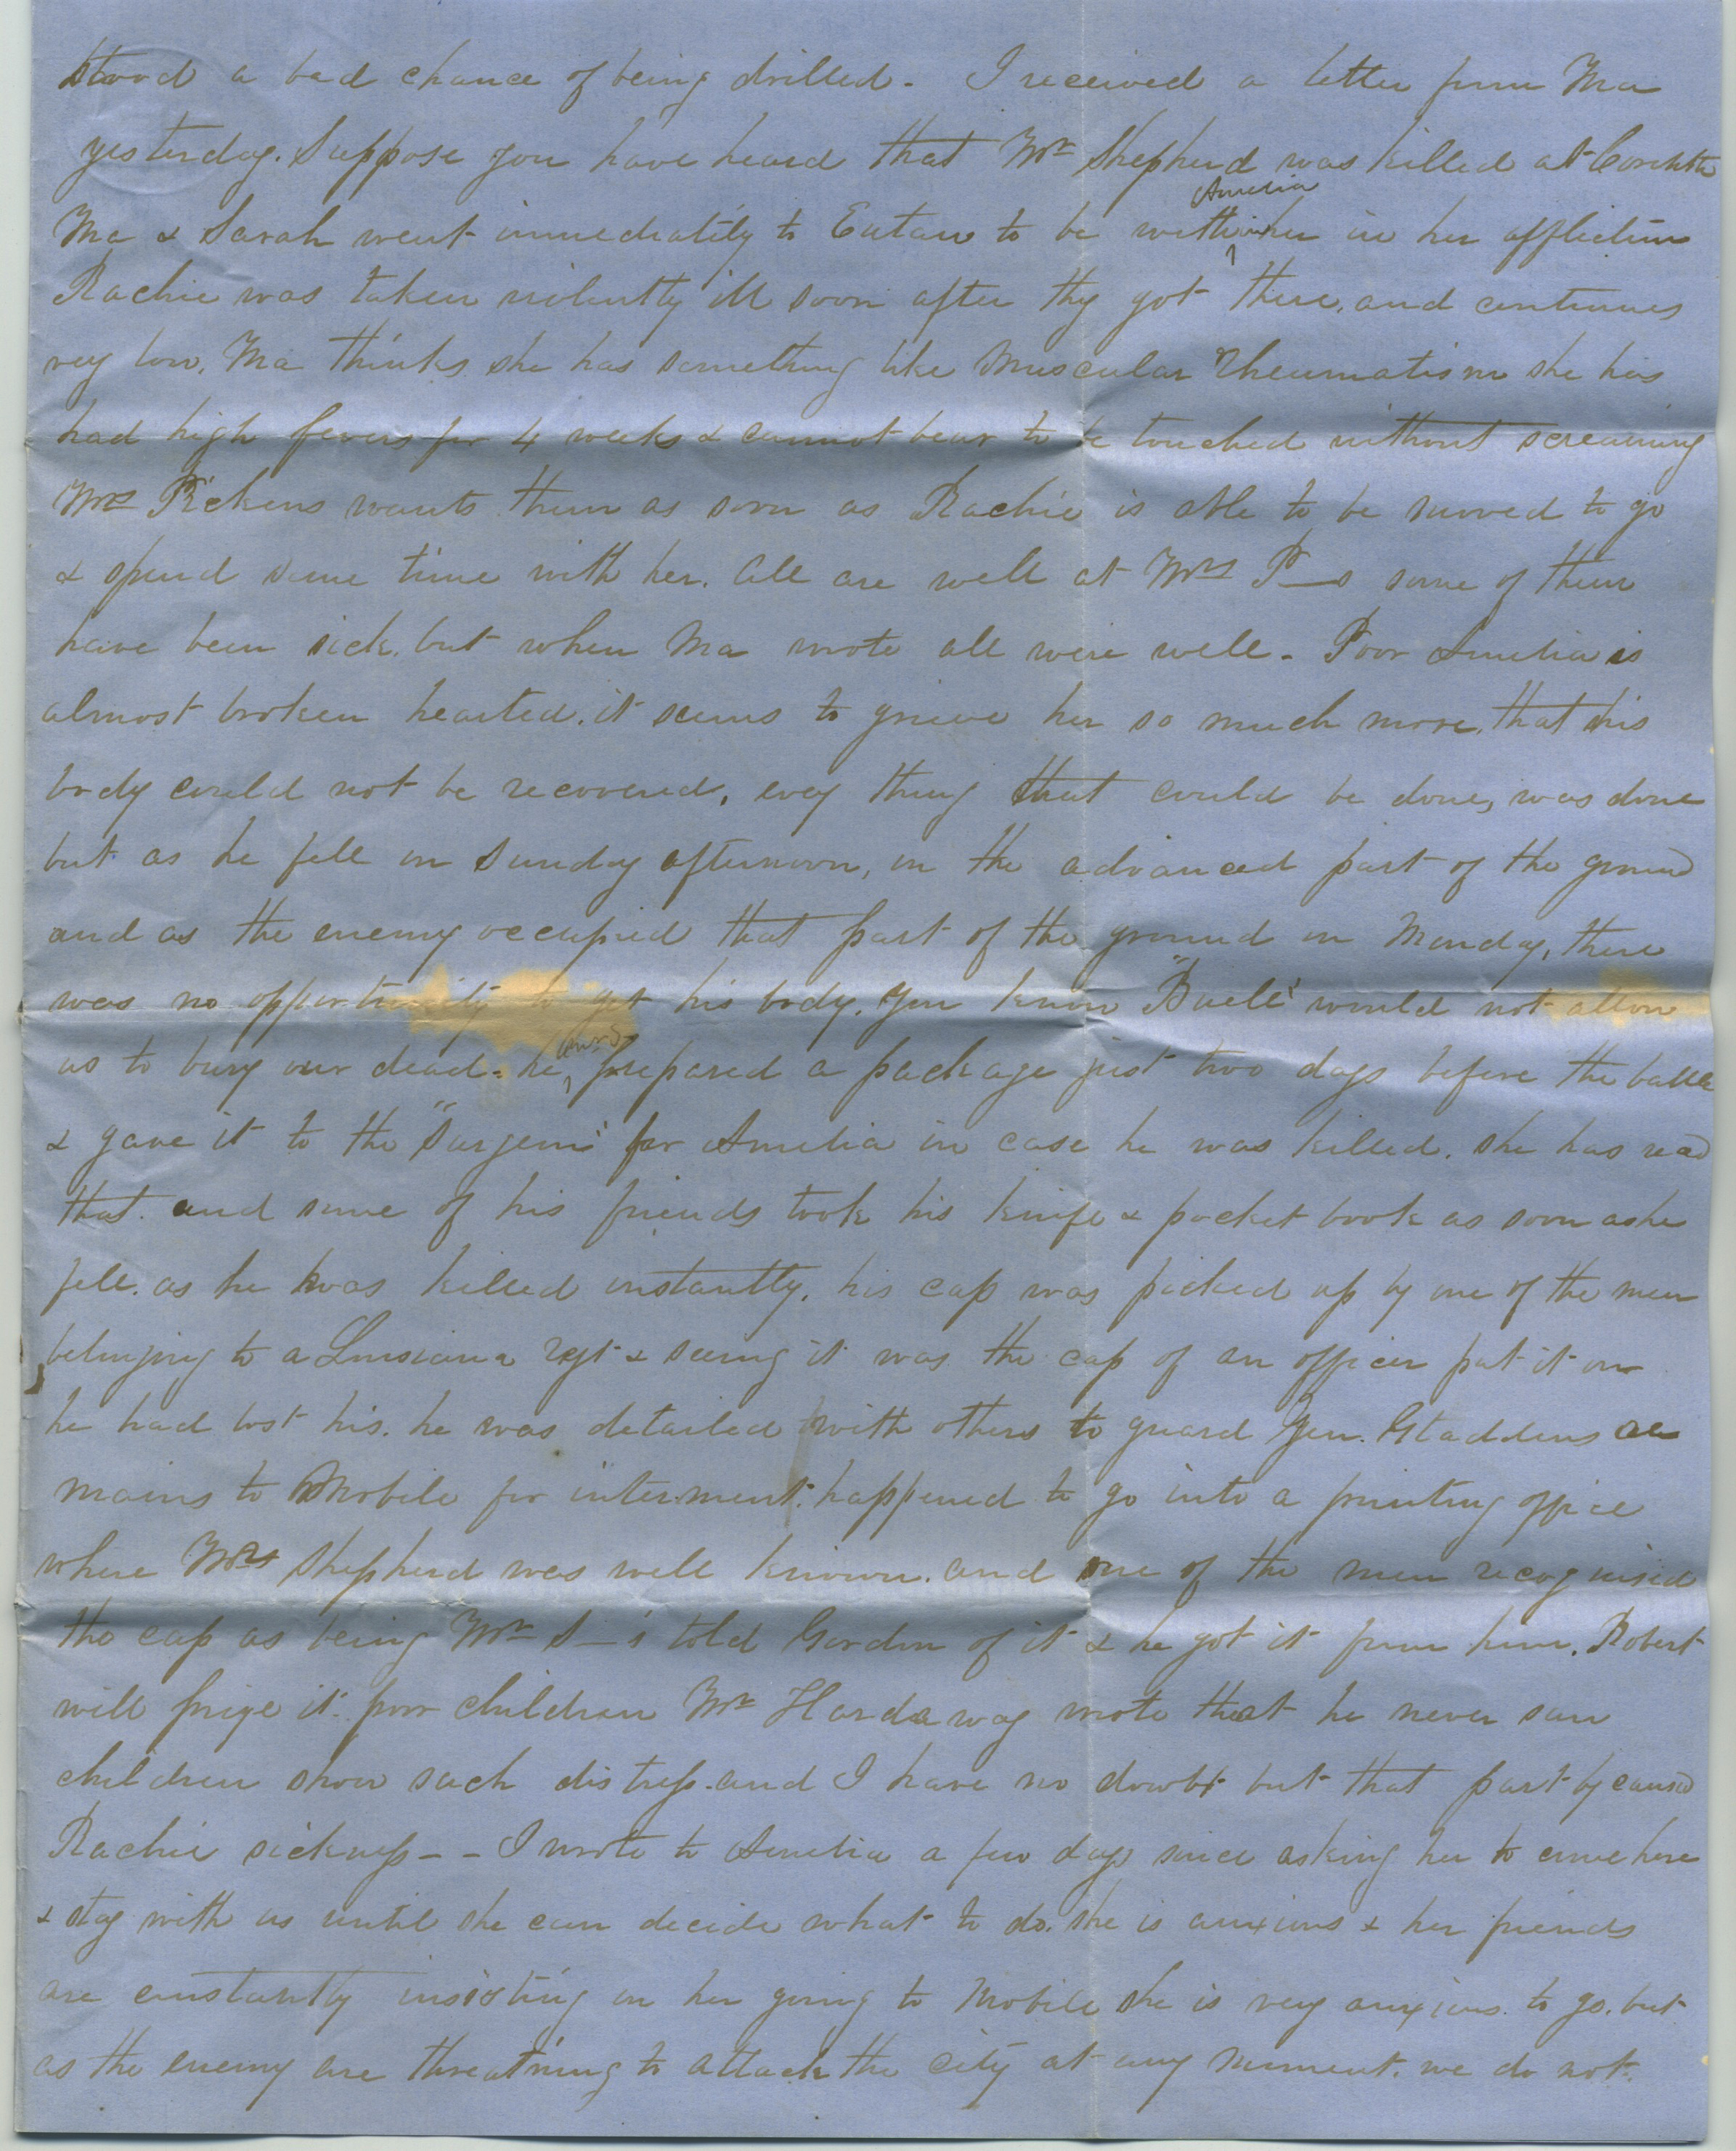 stood a bad chance of being drilled - I received a letter from Ma
yesterday. Suppose you have heard that Mr Shepherd was killed at Corinth
Ma & Sarah went immediately to Eutaw to be with Amelia in her affliction
Rachie was taken violently ill soon after thy got there, and continues
very low, Ma thinks she has something like Muscular Rheumatism she has
had high fevers for 4 weeks & cannot bear to be touched without screaming
Mrs Pickens wants them as soon as Rachie is able to be moved to go
& spend some time with her. All are well at Mrs P—s some of them
have been sick, but when Ma wrote all were well - Poor Amelia is
almost broken hearted. it seems to grieve her so much more, that his
body could not be recovered, evey thing that could be done, was done
but as he fell on Sunday afternoon, in the advanced part of the ground
and as the enemy occupied that part of the ground on Monday, there
was no opportunity to get his body. You know "Buell" would not allow
us to bury our dead - he prepared a package just two days before the battle
& gave it to the "Surgeon" for Amelia in case he was killed. she has read
that. and some of his friends took his knife & pocket book as soon as he
fell. as he was killed instantly. his cap was picked up by one of the men
belonging to a Louisiana regt & seeing it was the cap of an officer put it on
he had lost his. he was detailed with others to guard Gen. Gladdens re
mains to Mobile for interment. happened to go into a printing office
where Mr Shepherd was well known. and one of the men recognised
the cap as being Mr S—'s told Gordon of it & he got it from him. Robert
will prize it. poor children Mr Hardaway wrote that he never saw
children show such distress. and I have no doubt but that partly caused
Rachie sickness - - I wrote to Amelia a few days since asking her to come here
& stay with us until she can decide what to do. she is anxious & her friends
are constantly insisting on her going to Mobile she is very anxious to go. but
as the enemy are threatning to attack the city at any moment. we do not.